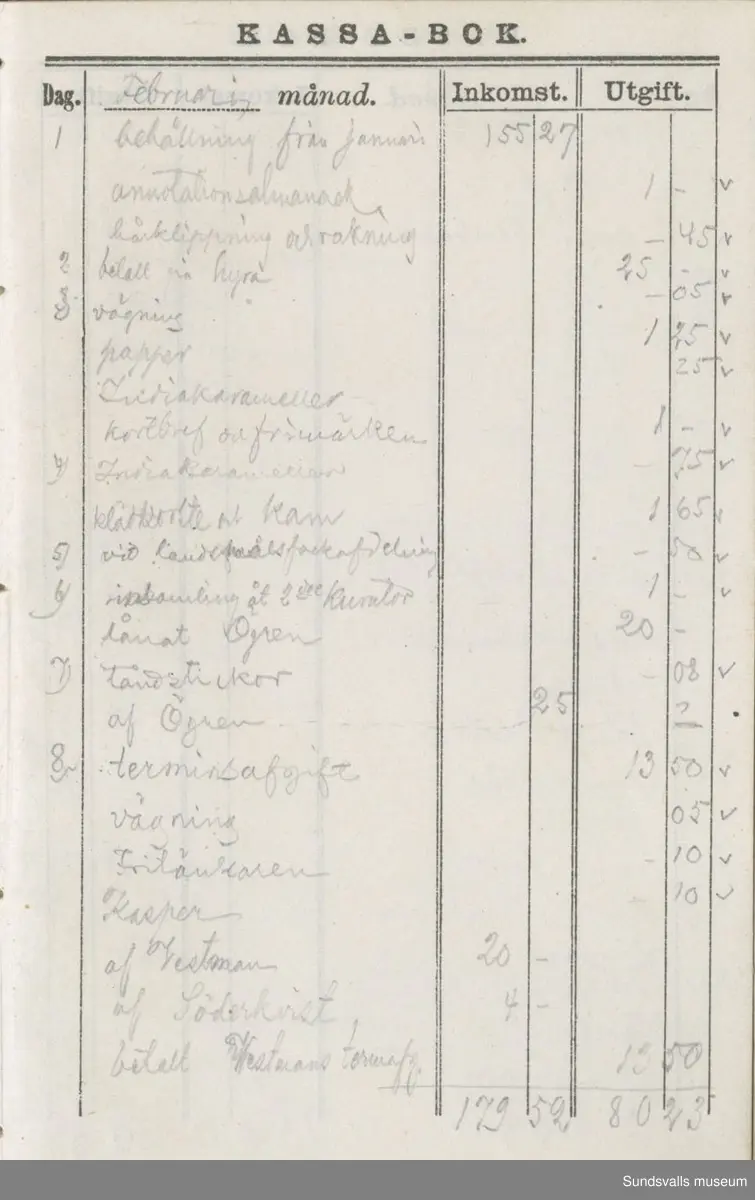 KASSA-BOK.
Dag. Februari månad. Inkomst. Utgift.
1 behållning från januari 155 27
annotationsalmanack 1 - v
hårklippning och rakning - 45 v
2 betalt in hyra 25 - v
3 vägning - 05 v
papper 1 25 v
Indiakarameller 25 v
kortbref och frimärken 1 - v
4) Indiakarameller - 75 v
klädborste och kam 1 65 v
5) vid landsmålsfockafdelning - 50 v
6) insamling åt 2dre Kurator 1 - v
lånat Ögren 20 -
7) tändstickor - 08 v
af Ögren 25
8 terminsafgift 13 50 v
vägning 05 v
Fritänkaren - 10 v
Kasper - 10 v
af Vestman 20 -
af Söderkvist 4 -
betalt Westmans termafg. 13 50
179 52 80 23
Sundsvalls museum